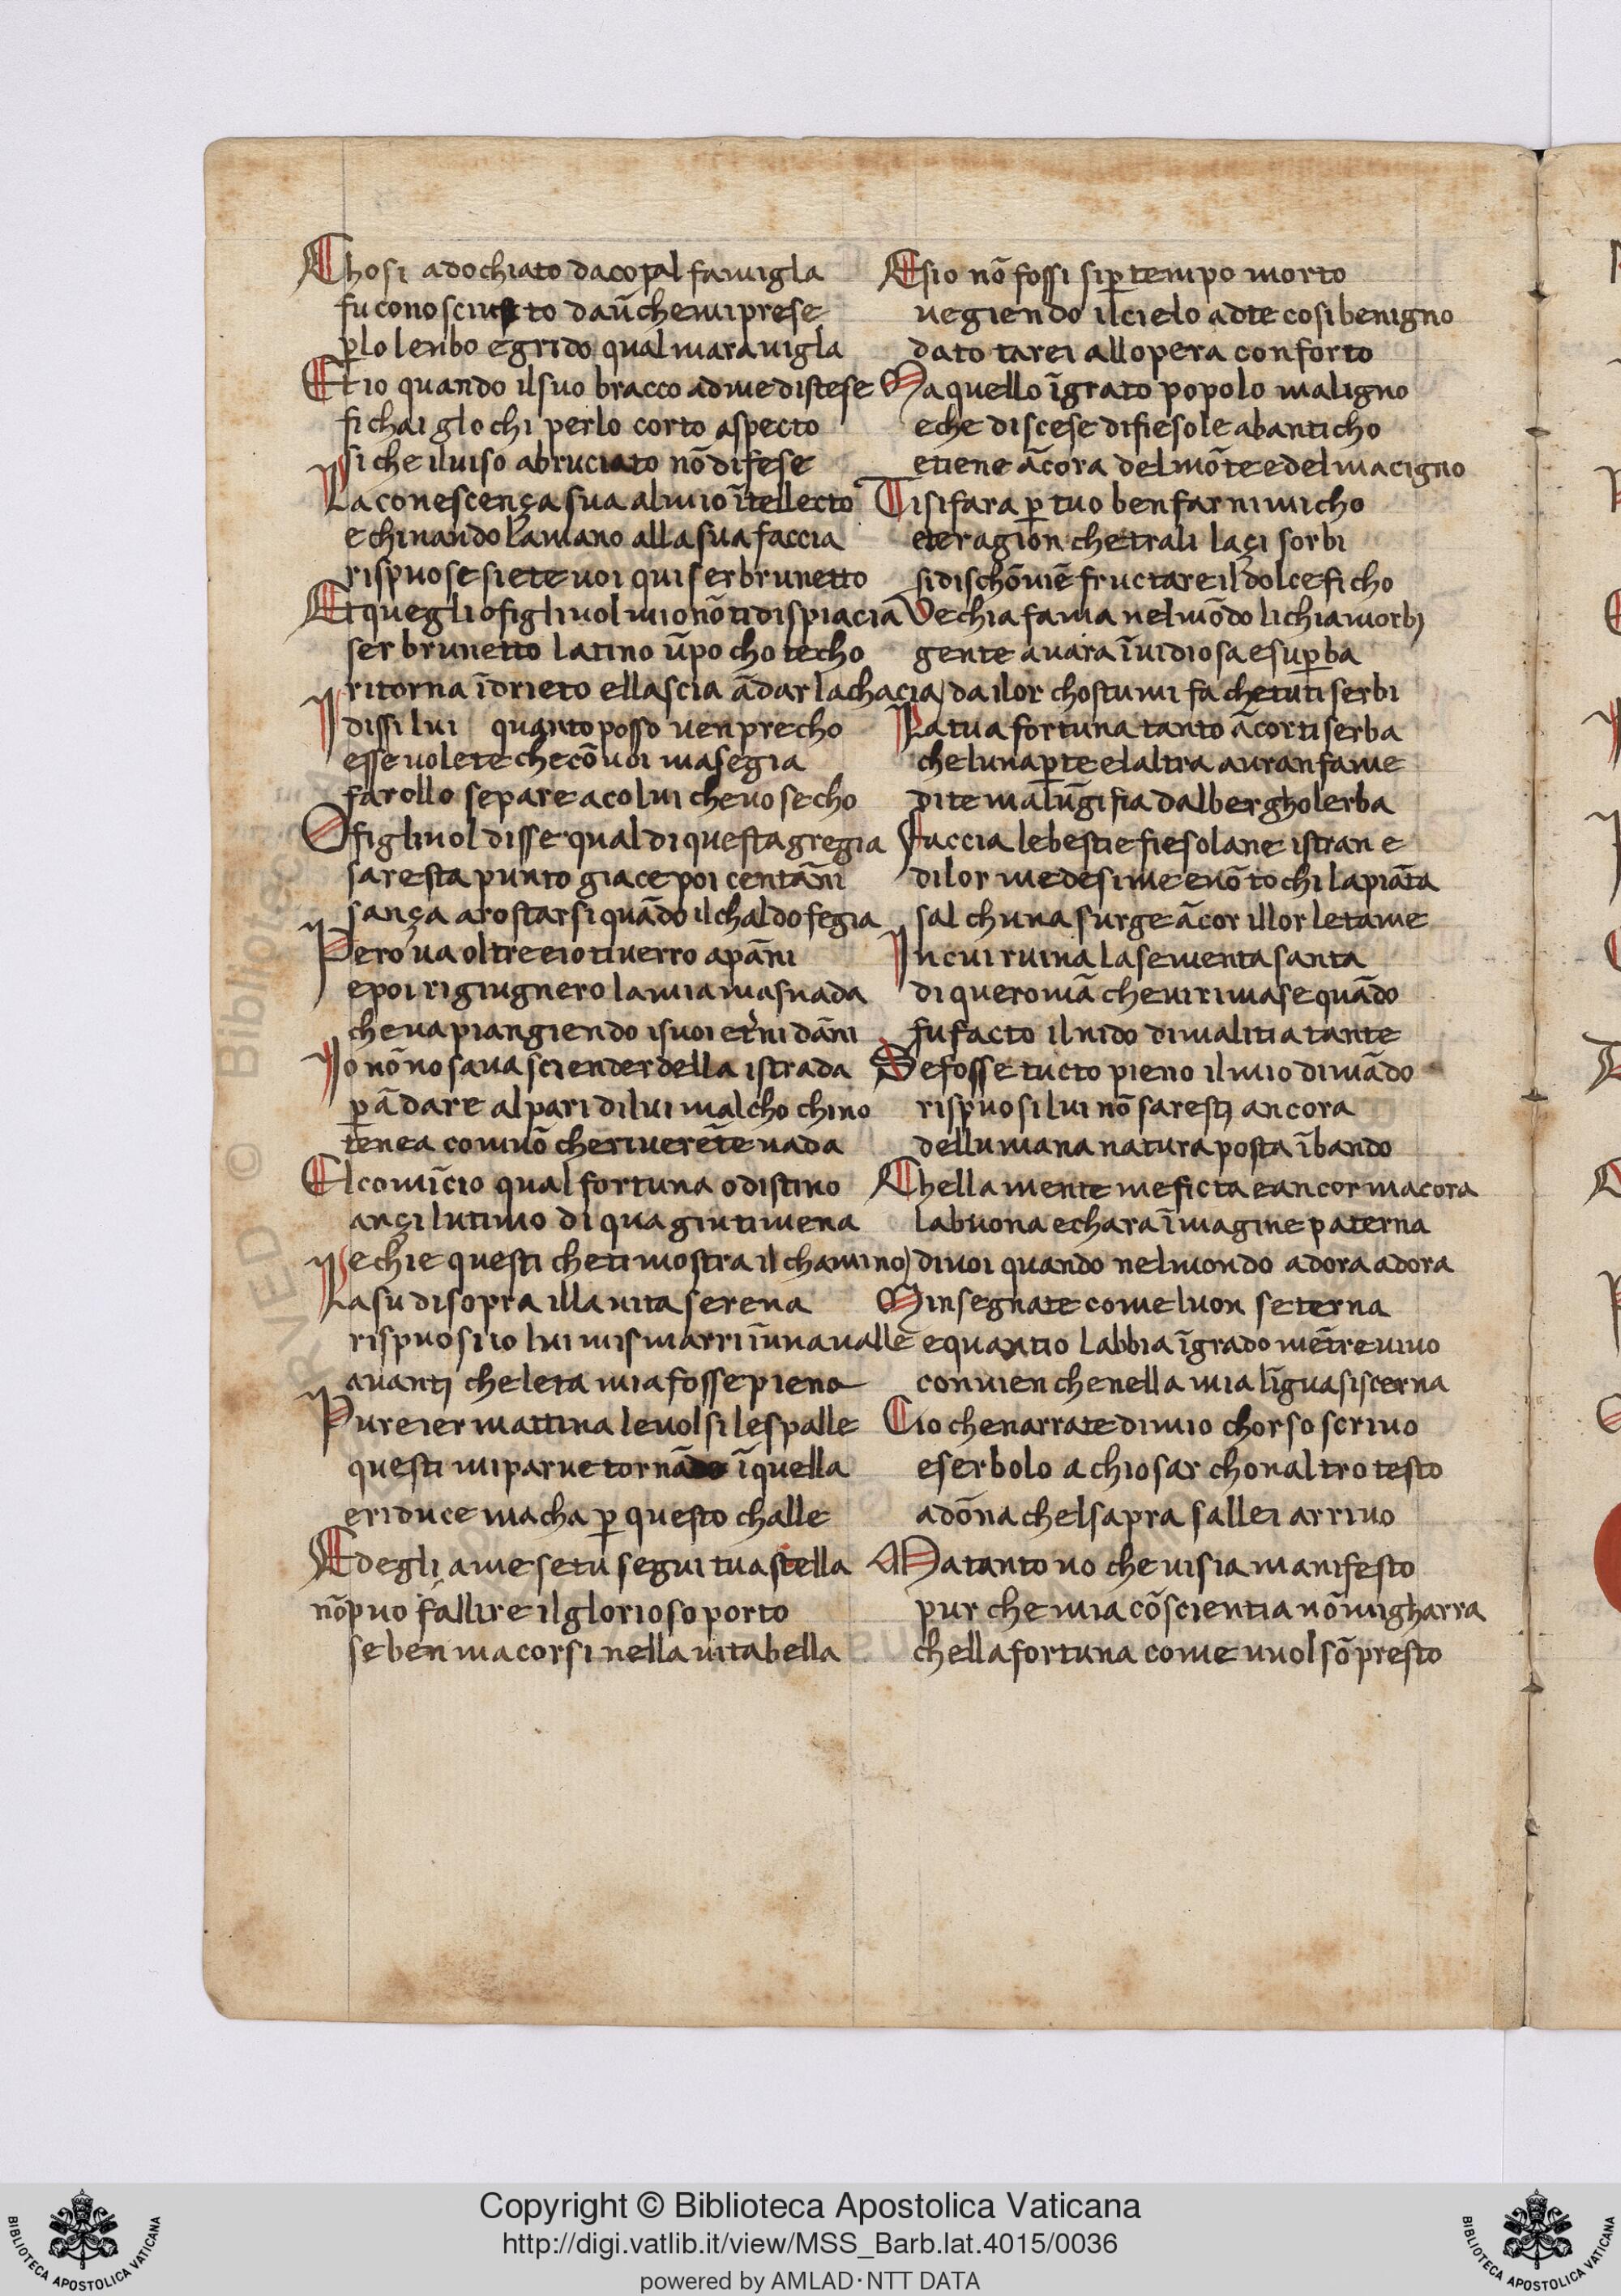 Chosi adochiato dacotal famigla
fu conosciuto daũ che mi prese
p̱lo lenbo egrido qual marauigla
Et io quando ilsuo bracco adme distese
fichai glochi perlo corto aspecto
si che iluiso abruciato nõ difese
La conescença sua almio ĩtellecto
e chinando lamano alla sua faccia
rispuose siete uoi qui ser brunetto
Et quegli o figliuol mio nõ ti dispiacia
ser brunetto latino ũ pocho techo
ritorna ĩdrieto ellascia ãdar la chacia
I dissi lui quanto posso uen precho
esse uolete che cõ uoi masegia
farollo se pare acolui che uo secho
O figliuol disse qual di questa gregia
saresta punto giace poi centãni
sança arostarsi quãdo il chaldo fegia
Pero ua oltre eio ti uerro apãni
epoi rigiugnero lamia masnada
che ua piangiendo i suoi et̃ni dãni
Io nõ nosaua sciender della istrada
p̱ ãdare al pari di lui mal cho chino
tenea com uõ che riuerẽte uada
El comĩcio qual fortuna o distino
ançi lutimo di qua giu ti mena
e chie questi che ti mostra il chamino
La su disopra illa uita serena
rispuosi io lui mi smarri ĩ una ualle
auanti che leta mia fosse piena
Pur eier mattina le uolsi le spalle
questi mi parue tornãdo ĩ quella
eriducemacha p̱ questo challe
Ed egli ame se tu segui tua stella
nõ puo fallire il glorioso porto
se ben macorsi nella uita bella
E sio nõ fossi si p̱ tempo morto
uegiendo ilcielo adte cosi benigno
dato tarei allopera conforto
Ma quello ĩgrato popolo maligno
e che discese di fiesole abanticho
etiene ãcora del mõte edel macigno
Ti si fara p̱ tuo ben far nimicho
et e ragion che tra li laçi sorbi
si dischõuiẽ fructare il dolce ficho
Vechia fama nel mõdo li chiam orbj
gente auara ĩuidiosa e sup̱ba
dai lor chostumi fa che tu ti serbi
La tua fortuna tanto ãcor ti serba
che luna p̱te elaltra auran fame
di te ma lũgi fia dal bergho lerba
Faccia le bestie fiesolane istran e
di lor medesime e nõ tochi la piãta
sal chuna surge ãcor il lor letame
In cui ruina la sementa santa
di que romã che ui rimase quãdo
fu facto il nido di malitia tante
Se fosse tucto pieno il mio dimãdo
rispuosi lui nõ saresti ancora
dellumana natura posta ĩ bando
Chella mente me ficta e ancor macora
la buona e chara ĩmagine paterna
di uoi quando nel mondo adora adora
Minsegnate come luon seterna
e quantio labbia ĩ grado mẽtre uiuo
conuien che nella mia lĩgua si scerna
Cio che narrate di mio chorso scriuo
e serbolo a chiosar chon altro testo
a dõna chel sapra salle i arriuo
Ma tanto uo che ui sia manifesto
pur che mia cõscientia nõ migharra
chella fortuna come uuol sõ presto
Copyright © Biblioteca Apostolica Vaticana
http://digi.vatlib.it/view/MSS_Barb.lat.4015/0036
powered by AMLAD·NTT DATA
BIBLIOTECA APOSTOLICA VATICANA
BIBLIOTECA APOSTOLICA VATICANA